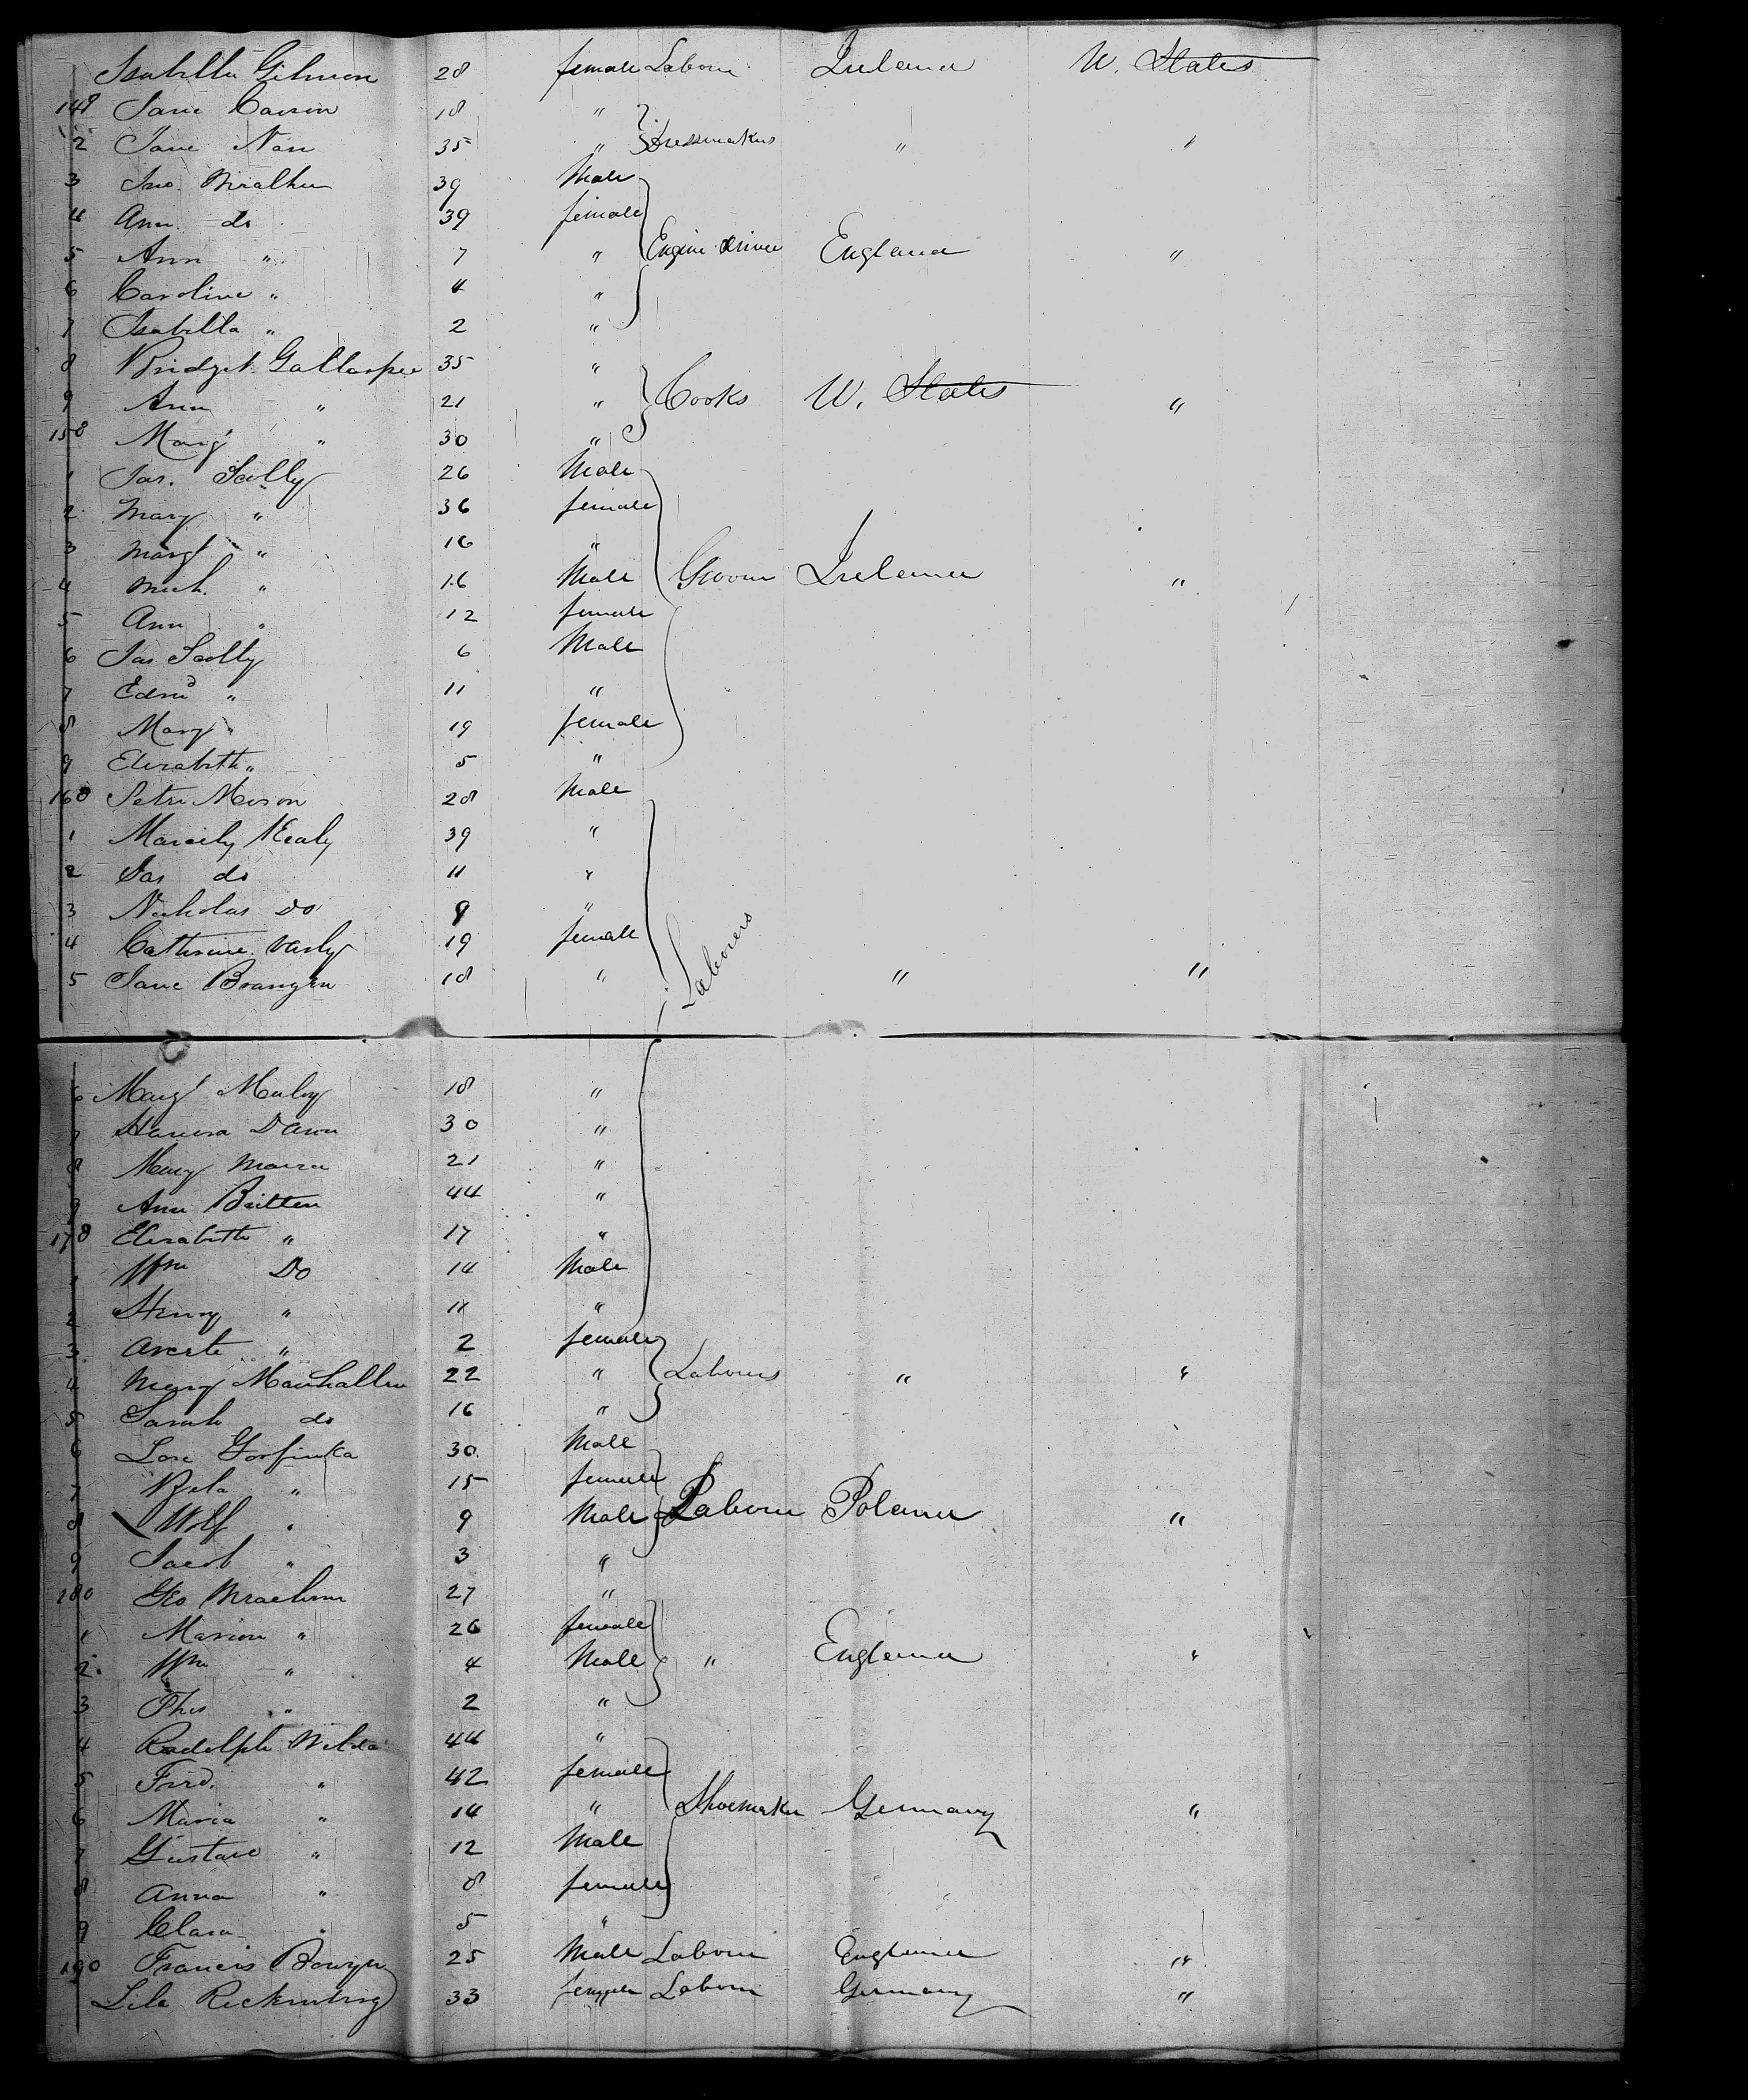 Isabella Gilmon 28 female Laborer Ireland U. States
148 Jane Carson 18 "
2 Jane Nan 35 " Dressmakers " "
3 Jno. 39 Male
4 Ann do 39 female
5 Ann " 7 " Engine driver England "
6 Caroline " 4 "
7 Isabella " 2 "
8 Bridget Gallaspee 35 "
9 Ann " 21 " Cooks U. States "
150 Marg " 30 "
1 Jas. Scully 26 Male
2 Mary " 36 female
3 Margt " 16 "
4 Mich. " 16 Male Groom Ireland "
5 Ann " 12 female
6 Jas Scolly 6 Male
7 Edmd " 11 "
8 Mary " 19 female
9 Elizabeth " 5 "
160 Peter Meson 28 Male
1 Healy 39 "
2 Jas do 11 "
3 Nicholas Do 9 "
4 Catherine 19 female
5 Jane Brangen 18 " Laborers " "
6 Margt Maloy 18 "
7 Hanora Dann 30 "
8 Mary 21 "
9 Ann Britten 44 "
170 Elizabeth " 17 "
1 Wm Do 14 Male
2 Henry " 11 "
3 " 2 female
4 Mary Manhallen 22 " Laborers " "
5 Sarah do 16 "
6 30 Male
7 " 15 female
8 Wolf " 9 Male Laborer Poland "
9 Jacob " 3 "
180 Geo 27 "
1 Marion " 26 female
2 Wm " 4 Male " England "
3 Thos " 2 "
4 Rodolph Welda 44 "
5 Ferd. " 42 female
6 Maria " 14 " Shoemaker Germany "
7 Gustave " 12 Male
8 Anna " 8 female
9 Clara " 5 "
190 Francis Bowyer 25 Male Laborer England "
33 female Laborer Germany "